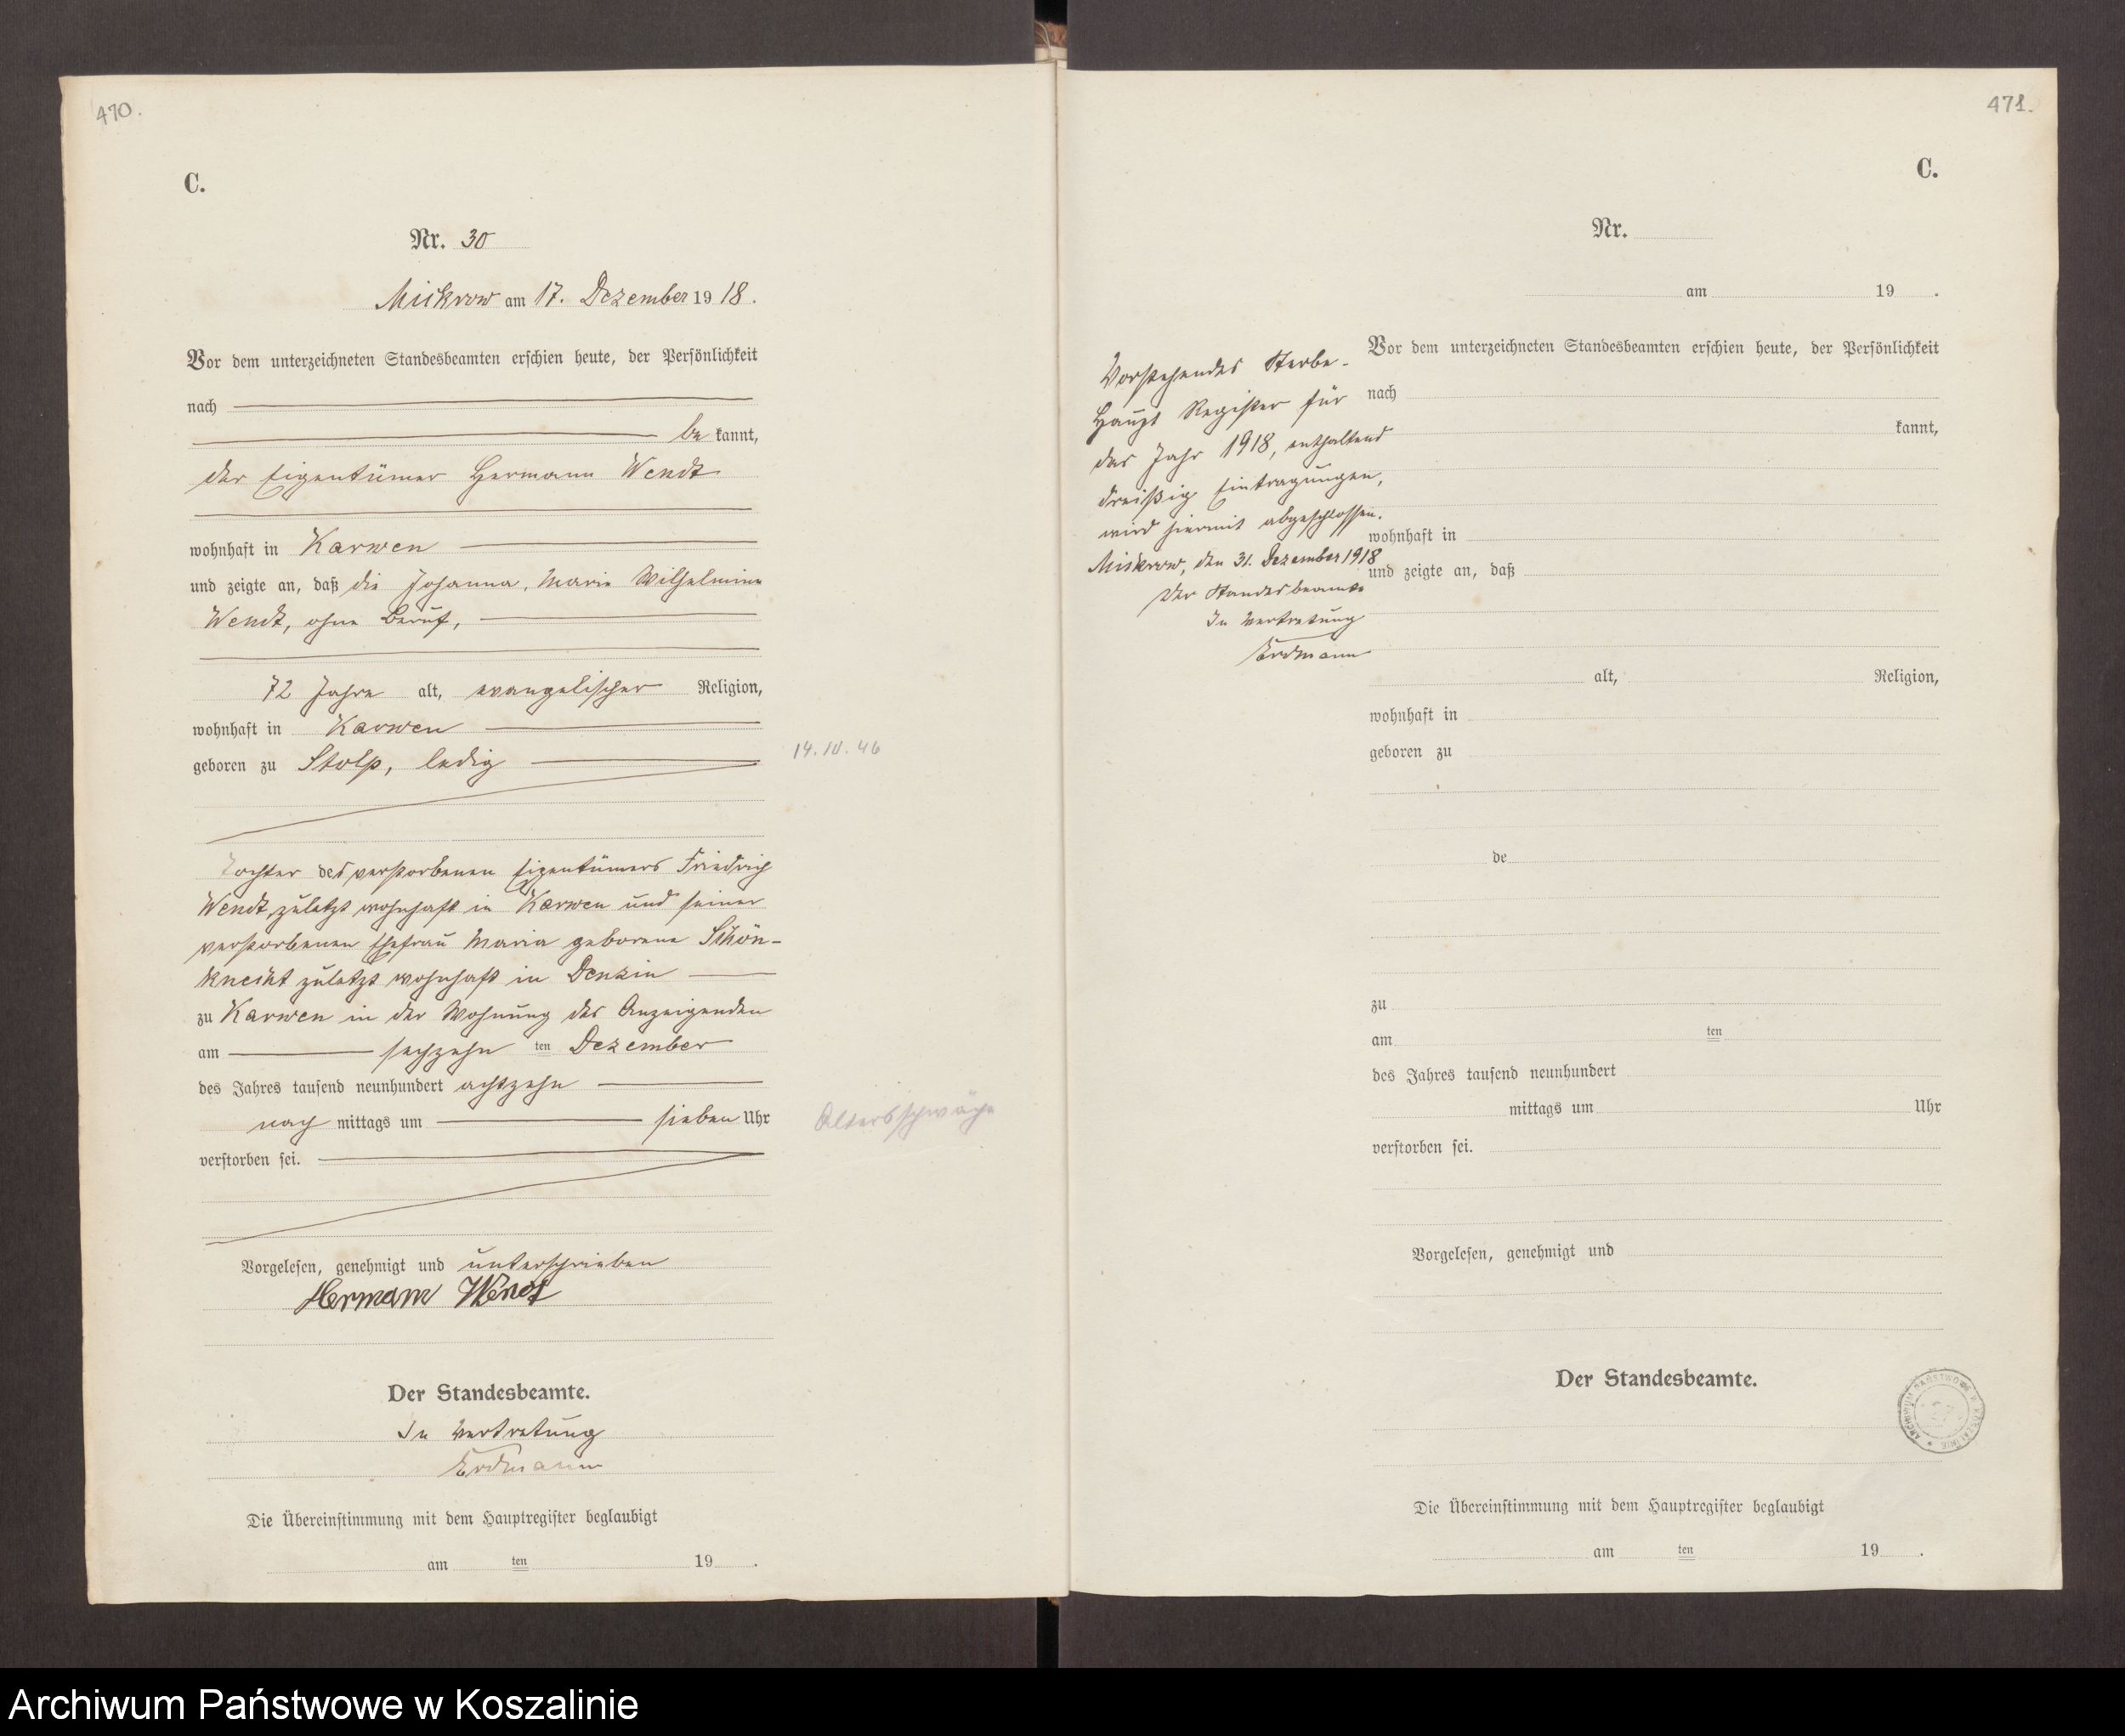 470.
C.
Nr. 30
Mickrow am 17. Dezember 1918.
Vor dem unterzeichneten Standesbeamten erschien heute, der Persönlichkeit
nach
be kannt,
der Eigentümer Hermann Wendt
wohnhaft in Karwen
und zeigte an, daß die Johanna, Marie Wilhelmine
Wendt, ohne Beruf,
72 Jahre alt, evangelischer Religion,
wohnhaft in Karwen
geboren zu Stolp, ledig
14. IV. 46
Tochter des verstorbenen Eigentümers Friedrich
Wendt, zuletzt wohnhaft in Karwen und seiner
verstorbenen Ehefrau Maria geborene Schön-
knecht zuletzt wohnhaft in Denzin
zu Karwen in der Wohnung des Anzeigenden
am sechzehn ten Dezember
des Jahres tausend neunhundert achtzehn
nach mittags um sieben Uhr
Altersschwäche
verstorben sei.
Vorgelesen, genehmigt und unterschrieben
Hermann Wendt
Der Standesbeamte.
In Vertretung
Erdmann
Die Übereinstimmung mit dem Hauptregister beglaubigt
am ten 19 .
471.
C.
Nr.
am 19 .
Vorstehendes Sterbe-
Haupt Register für
das Jahr 1918, enthaltend
dreißig Eintragungen,
wird hiermit abgeschlossen.
Mickrow, den 31. Dezember 1918
Der Standesbeamte
In Vertretung
Erdmann
Vor dem unterzeichneten Standesbeamten erschien heute, der Persönlichkeit
nach
kannt,
wohnhaft in
und zeigte an, daß
alt, Religion,
wohnhaft in
geboren zu
de
zu
am ten
des Jahres tausend neunhundert
mittags um Uhr
verstorben sei.
Vorgelesen, genehmigt und
Der Standesbeamte.
ARCHIWUM PAŃSTWOWE W KOSZALINIE
Die Übereinstimmung mit dem Hauptregister beglaubigt
am ten 19 .
Archiwum Państwowe w Koszalinie